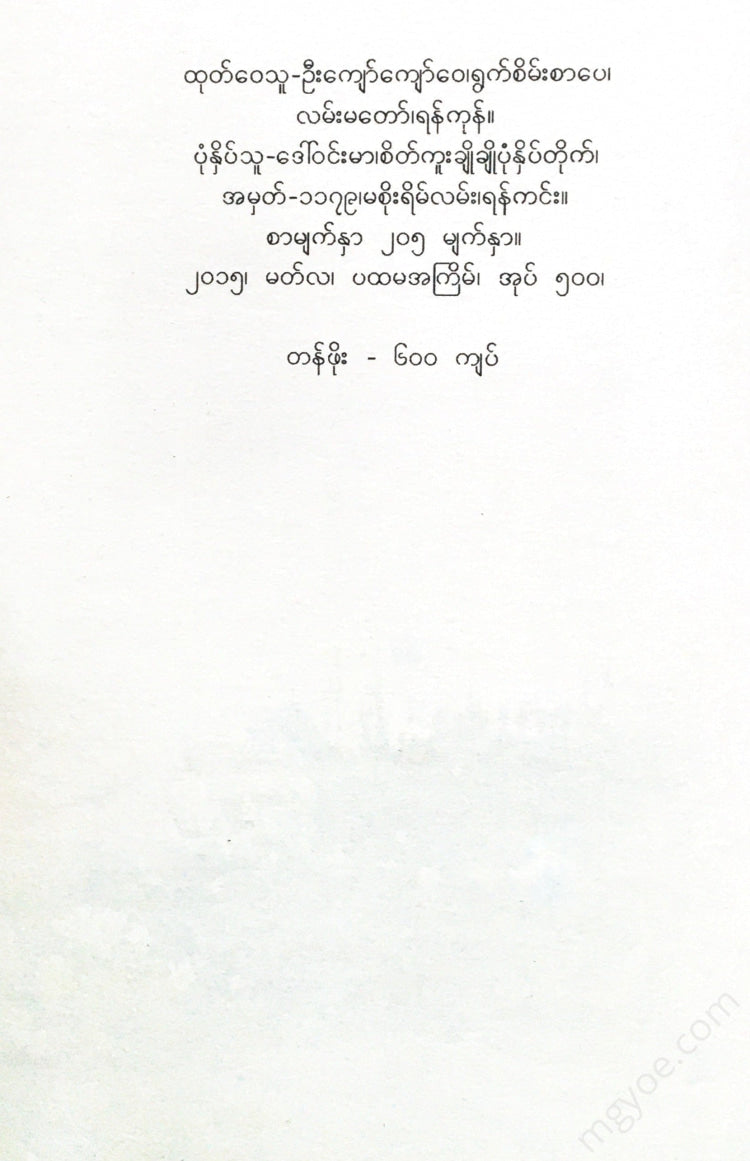 ထုတ်ဝေသူ-ဦးကျော်ကျော်ဝေ၊ရွက်စိမ်းစာပေ၊
လမ်းမတော်၊ရန်ကုန်။
ပုံနှိပ်သူ-ဒေါ်ဝင်းမာ၊စိတ်ကူးချိုချိုပုံနှိပ်တိုက်၊
အမှတ်-၁၁၇၉၊မစိုးရိမ်လမ်း၊ရန်ကင်း။
စာမျက်နှာ ၂၀၅ မျက်နှာ။
၂၀၁၅၊ မတ်လ၊ ပထမအကြိမ်၊ အုပ် ၅၀၀၊
တန်ဖိုး - ၆၀၀ ကျပ်
mgyoe.com